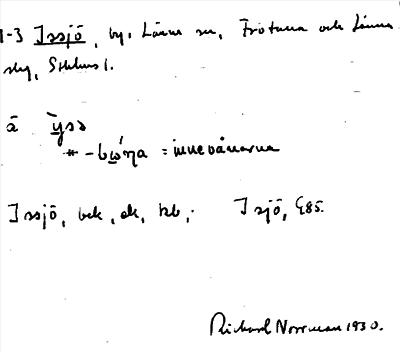 1-3 Issjö, by, Länna sn, Frötuna och Länna
skg, Sthlms l.
å ỳsə
* -bω´ŋa = innevånarna
Issjö, bek, ek, kb,. Isjö, E85.
Richard Norrman 1930.